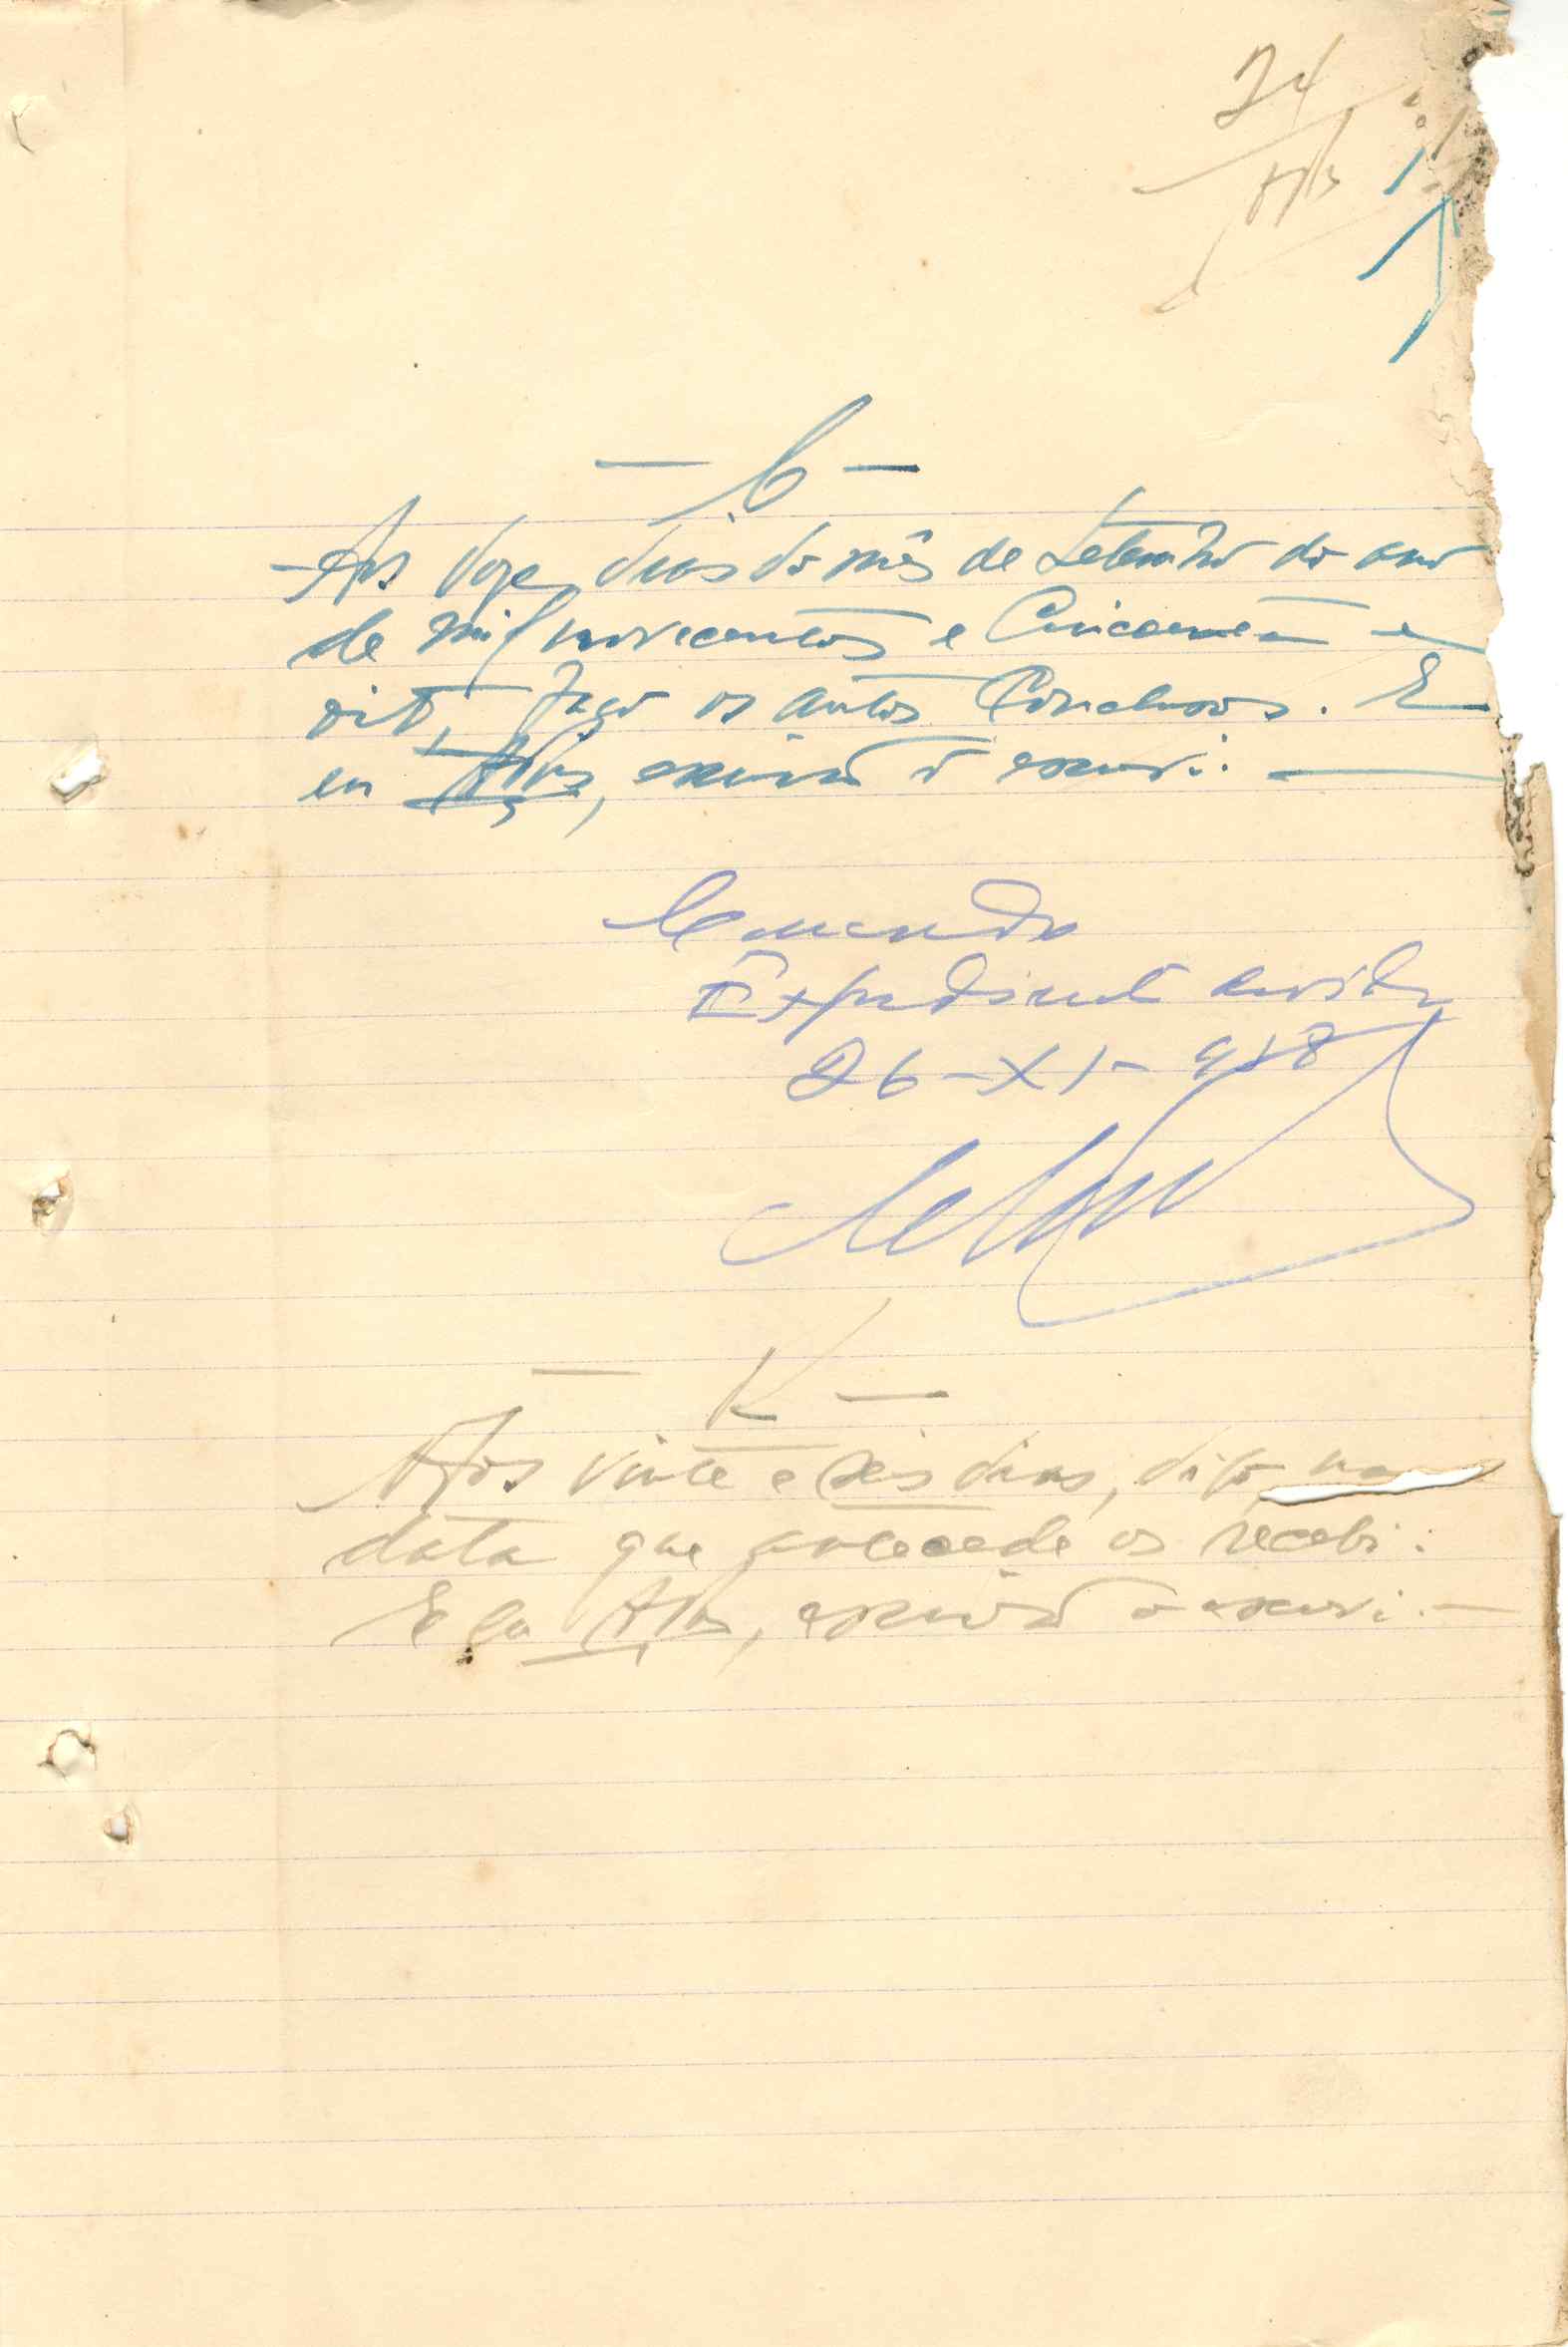 24
— C —
Aos doze dias do mês de Setembro do ano
de mil novecentos e Cincoenta e
oito, faço os autos Conclusos. E
eu, escrivão o escrevi: —
Expediente
26-XI-958
— R —
Aos vinte e seis dias, digo, na
data que antecede os recebi:
E eu, escrivão o escrevi. —